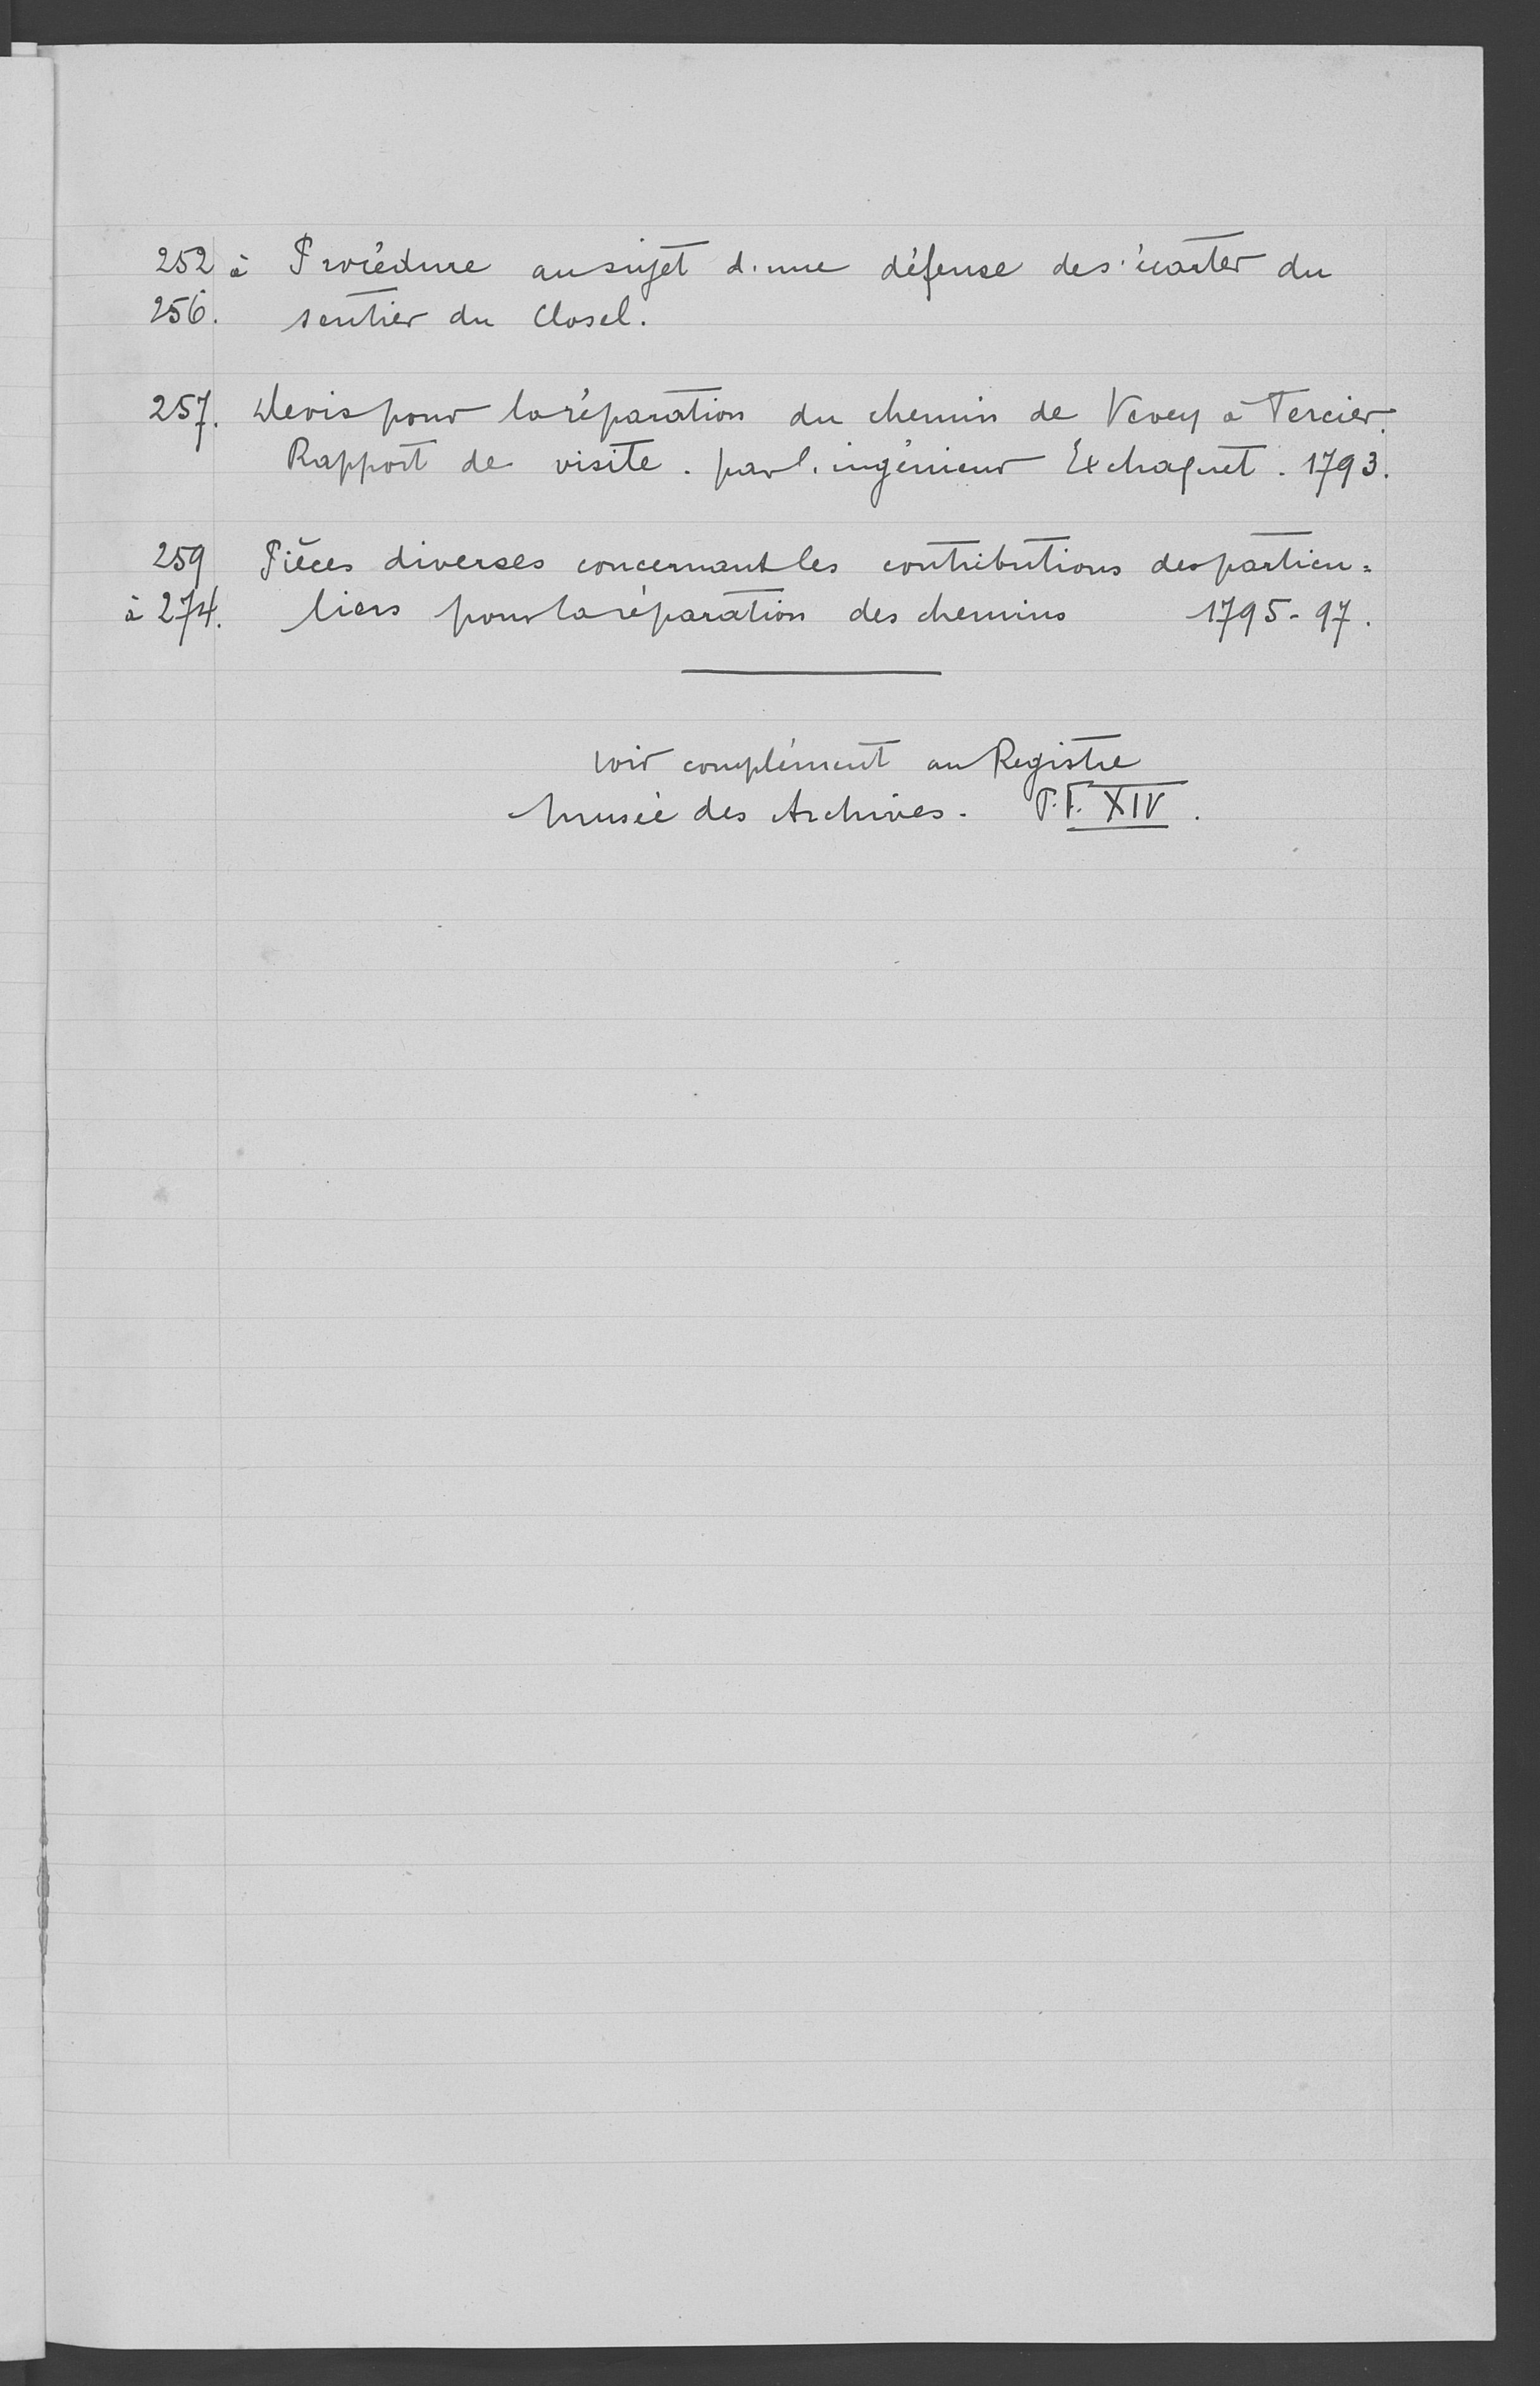 252 à Procédure au sujet d'une défense de s'écarter du
256. sentier du Closel.
257. Devis pour la réparation du chemin de Vevey à Tercier.
Rapport de visite. par l'ingénieur Exchaquet. 1793.
259 Pièces diverses concernant les contributions des particu=
à 274. liers pour la réparation des chemins 1795-97.
voir complément au Registre
Musée des Archives. P.F. XIV.